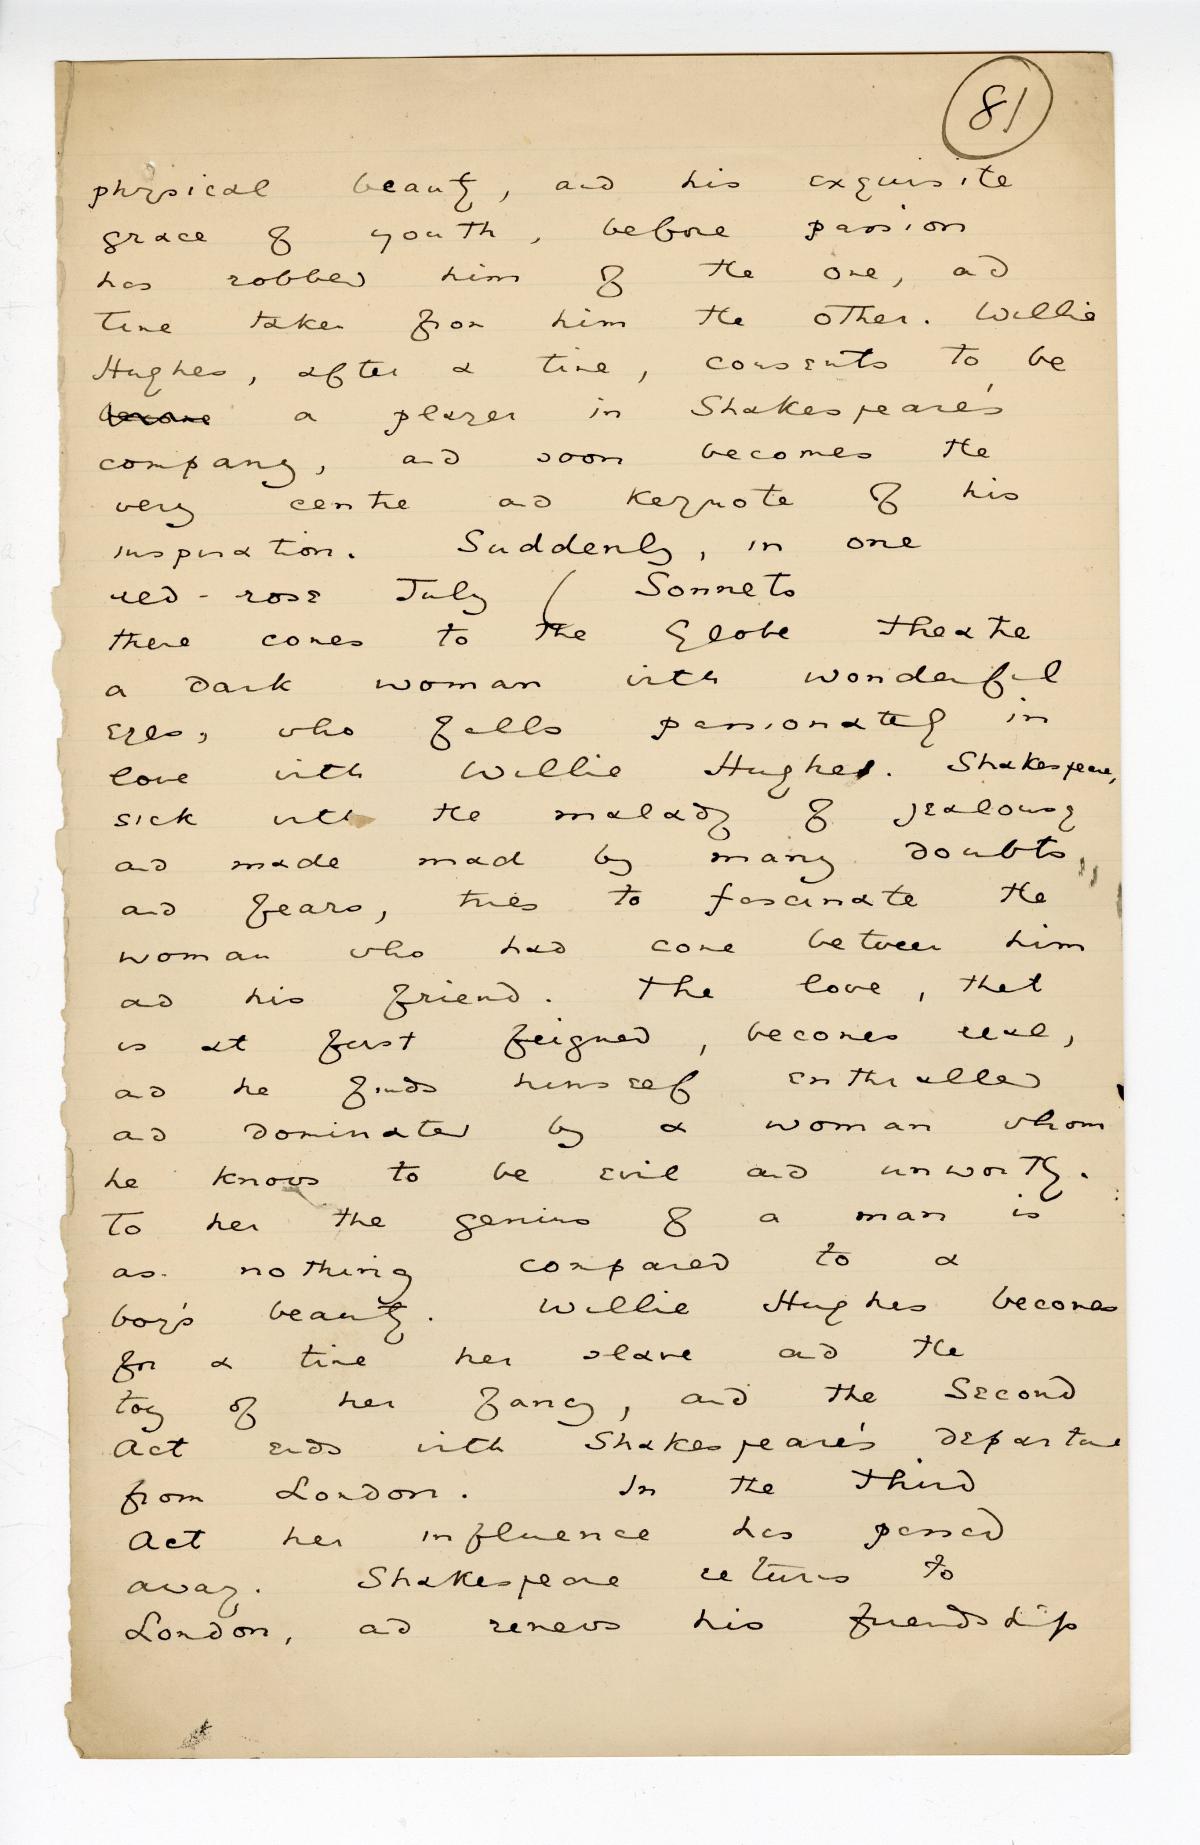 81
physical beauty, and his exquisite
grace of youth, before passion
has robbed him of the one, and
time taken from him the other. Willie
Hughes, after a time, consents to be
become a player in Shakespeare's
company, and soon becomes the
very centre and keynote of his
inspiration. Suddenly, in one
red-rose July ( Sonnets
there comes to the Globe Theatre
a dark woman with wonderful
eyes, who falls passionately in
love with Willie Hughes. Shakespeare,
sick with the malady of jealousy
and made mad by many doubts,
and fears, tries to fascinate the
woman who had come between him
and his friend. The love, that
is at first feigned, becomes real,
and he finds himself enthralled
and dominated by a woman whom
he knows to be evil and unworthy.
To her the genius of a man is
as nothing compared to a
boy's beauty. Willie Hughes becomes
for a time her slave and the
toy of her fancy, and the Second
Act ends with Shakespeare's departure
from London. In the Third
Act her influence has passed
away. Shakespeare returns to
London, and renews his friendship